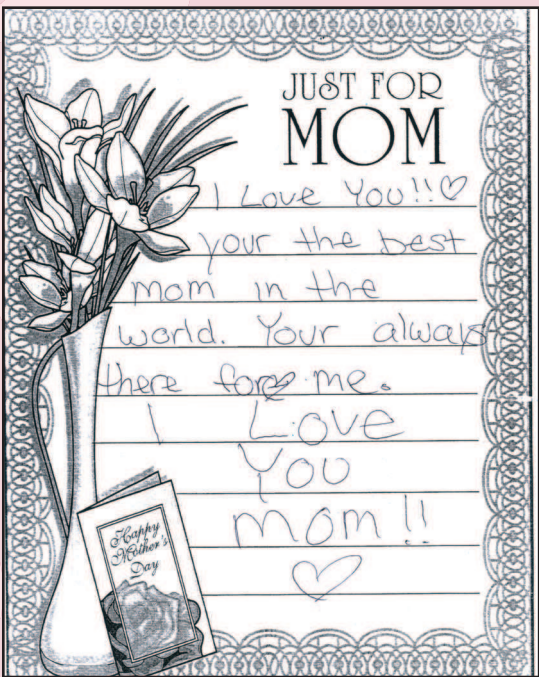 JUST FOR
MOM
I Love You!!♡
your the best
mom in the
world. Your always
there for me.
I Love
You
mom!!
♡
Happy
Mother's
Day